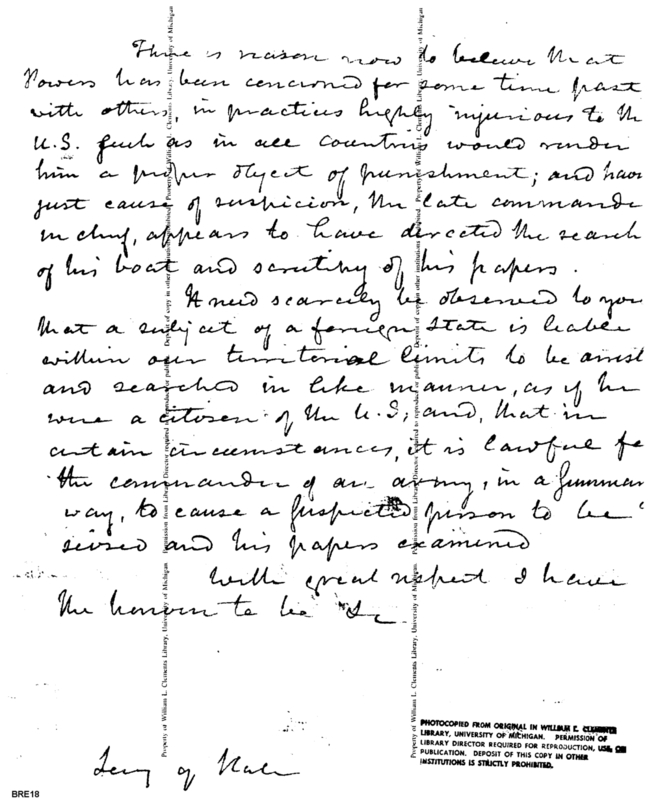 There is reason now to believe that
Powers has been concerned for some time past
with others, in practices highly injurious to the
U.S. such as in all countries would render
him a proper object of punishment; and have
just cause of suspicion, the late commande
in chief, appears to have directed the search
of his boat and scrutiny of his papers.
It need scarcely be observed to you
that a subject of a foreign State is liable
within our territorial limits to be arrest
and searched in like manner, as if he
were a citosen of the U.S; and, that in
certain circumstances, it is lawful fo
the commander of an army, in a summar
way, to cause a suspected person to be
seised and his papers examined
With great respect I have
the honor to be &c
Secy of State
PHOTOCOPIED FROM ORIGINAL IN WILLIAM L. CLEMENTS
LIBRARY, UNIVERSITY OF MICHIGAN. PERMISSION OF
LIBRARY DIRECTOR REQUIRED FOR REPRODUCTION, USE, OR
PUBLICATION. DEPOSIT OF THIS COPY IN OTHER
INSTITUTIONS IS STRICTLY PROHIBITED.
BRE18
Property of William L. Clements Library, University of Michigan
Permission from Library Director required to reproduce or publish. Deposit of copy in other institutions prohibited.
Property of William L. Clements Library, University of Michigan
Property of William L. Clements Library, University of Michigan
Permission from Library Director required to reproduce or publish. Deposit of copy in other institutions prohibited.
Property of William L. Clements Library, University of Michigan